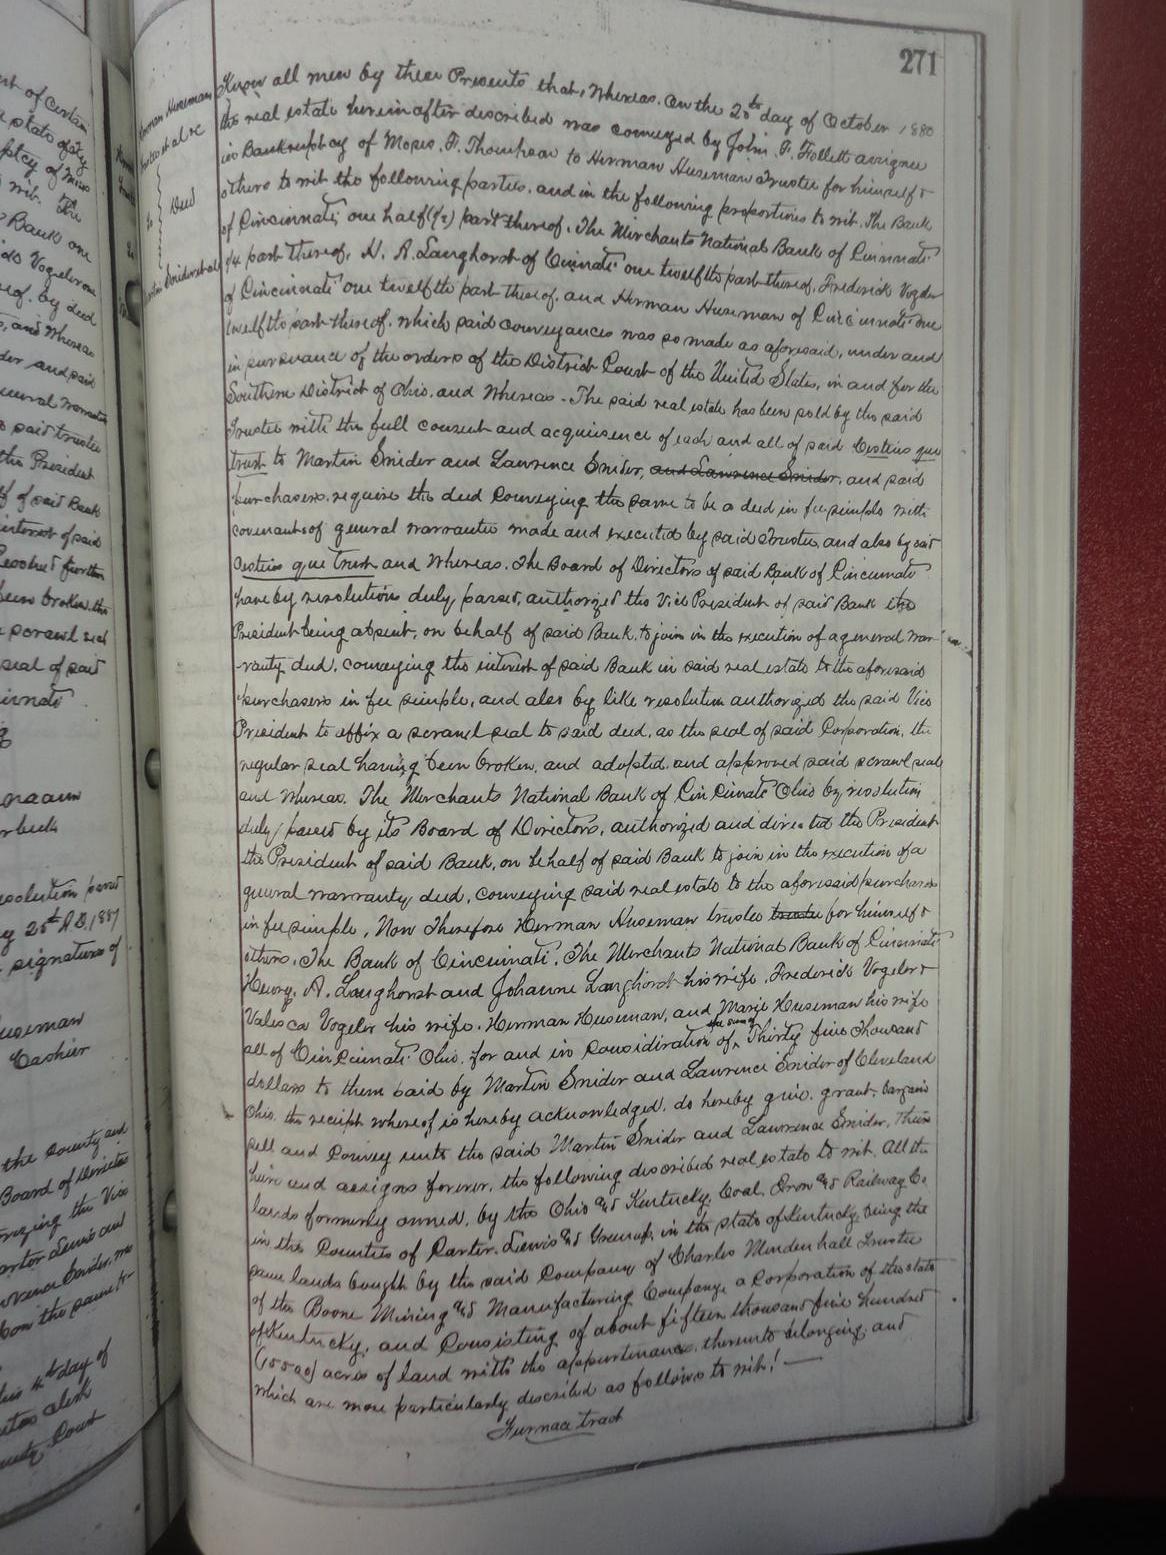 271
Know all men by these Presents that, Whereas, on the 2nd day of October 1880
the real estate herein after described was conveyed by John F. Follett assignee
in Bankruptcy of Moses. F. Thompson to Herman Huseman Trustee for himself &
others to wit the following parties, and in the following proportions to wit. The Bank
of Cincinnati, one half (1/2) part thereof. The Merchants National Bank of Cincinnati
1/4 part thereof, H. A. Langhorst of Cinnati one twelfth part thereof, Frederick Vogeler
of Cincinnati one twelfth part thereof, and Herman Huseman of Cincinnati one
twelfth part thereof. which said conveyances was so made as aforesaid, under and
in pursuance of the orders of the District Court of the United States, in and for the
Southern District of Ohio, and Whereas - The said real estate has been sold by the said
Trustee with the full consent and acquiesence of each and all of said Cestius que
trust to Martin Snider and Lawrence Snider, and Lawrence Snider, and said
purchasers, require the deed conveying the same to be a deed in fee simple with
covenants of general warrantee made and executed by said Trustee, and also by said
Cestius que trust and Whereas. The Board of Directors of said Bank of Cincinnati
have by resolution duly passed, authorized the Vice President of said Bank the
President being absent, on behalf of said Bank, to join in the execution of a general war-
-ranty deed, conveying the interest of said Bank in said real estate to the aforesaid
purchasers in fee simple, and also by like resolution authorized the said Vice
President to affix a scrawl seal to said deed, as the seal of said Corporation, the
regular seal having been broken, and adopted, and approved said scrawl seal
and Whereas. The Merchants National Bank of Cincinnati Ohio by resolution
duly passed by its Board of Directors, authorized and directed the President
the President of said Bank, on behalf of said Bank to join in the execution of a
general warranty deed, conveying said real estate to the aforesaid purchasers
in fee simple, Now Therefore Herman Huseman trustee trustee for himself &
others, The Bank of Cincinnati, The Merchants National Bank of Cincinnati
Henry, A. Langhorst and Johanne Langhorst his wife, Frederick Vogeler &
Valesca Vogeler his wife, Herman Huseman, and Marie Huseman his wife
all of Cincinnati Ohio, for and in consideration of the sum of Thirty five Thousand
dollars to them paid by Martin Snider and Lawrence Snider of Cleveland
Ohio, the receipt whereof is hereby acknowledged, do hereby give, grant, bargain
sell and convey unto the said Martin Snider and Lawrence Snider, Their
heirs and assigns forever, the following described real estate to wit. All the
lands formerly owned, by the Ohio and Kentucky, Coal, Iron and Railway Co
in the Counties of Carter, Lewis and Greenup, in the state of Kentucky, being the
same lands bought by the said Company of Charles Mendenhall Trustee
of the Boone Mining and Manufacturing Company, a Corporation of the state
of Kentucky, and consisting of about fifteen thousand five hundred
(15500) acres of land with the appurtinances thereunto belonging, and
which are more particularly described as follows to wit! —
Furnace tract